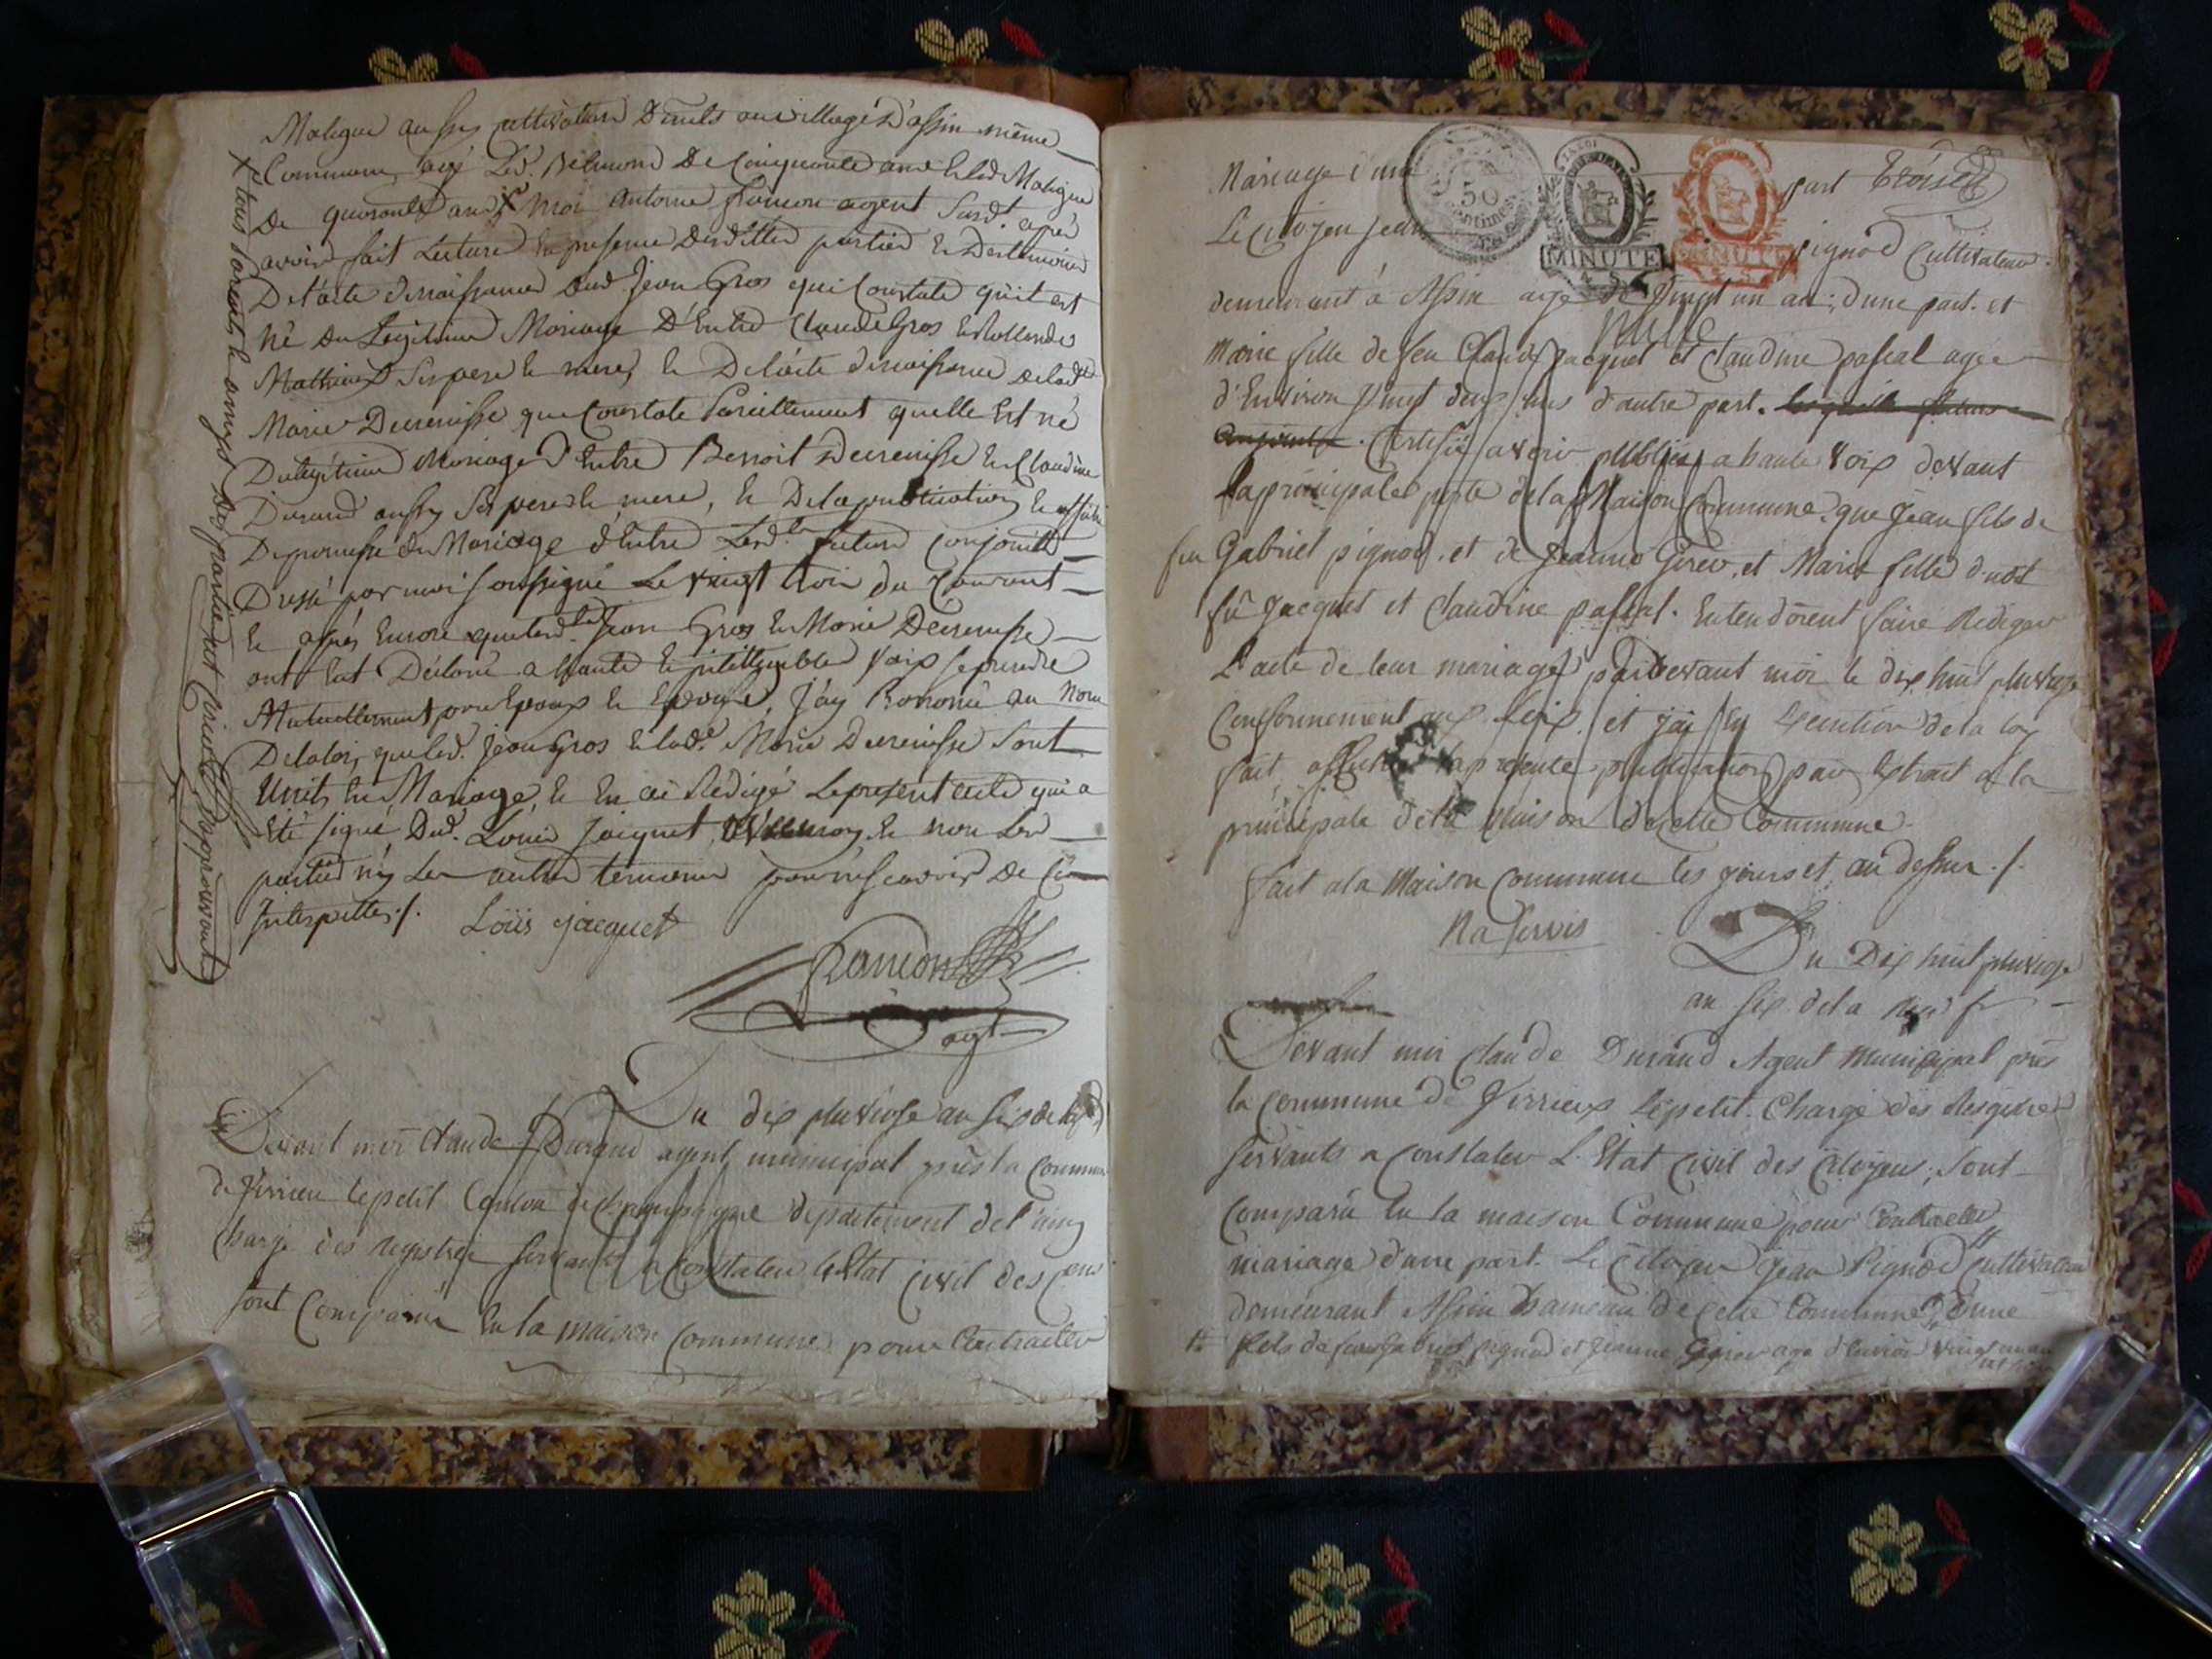 Matigne aussy cultivateur au village d'assin même
Commune, agé Led. De Cinquante ans & led. Matigne
De quarante ans moi antoine francon agent Susd.t apres
avoir fait Lecture En presence Desdittes parties & Des temoins
De l'acte de naissance dud. Jean Gros qui Constate qu'il est
né Du Legitime Mariage D'Entre Claude Gros &
Mathieu Ses pere & mere, & De l'acte de naissance de lad.e
Marie Decrenisse que Constate Pareillement quelle Est né
Du legitime Mariage d'Entre Benoit Decrenisse & Claudine
Durand aussy Ses pere & mere, & De la publication &
De promesse du Mariage d'Entre Lesd.ts futurs conjoints
Dressé par moi soussigné Le vingt trois du Courant
& après Encore que led. Jean Gros & Marie Decrenisse
ont Eut Déclaré a haute & intelligible voix se prendre
Mutuellement pour Epoux & Epouse, J'ay Prononcé au Nom
De la loi, que led. Jean Gros & lad.e Marie Decrenisse Sont
Units En Mariage, & En ai Rédigé Le present acte qui a
Eté signé, Dud. Louis Jacquet, & non Les
parties ny Les autres temoins pour ne scavoir De Ce
Interpellés ./.
Loüis jacquet
francon
agt
X tous parents & amys Des parties
approuvant
Du dix pluviose an six de la
Devant moi Claude Durand agent municipal près la commune
de Virrieu le petit Canton de Champagne département de l'ain
Chargé des Registres servants a Constater L'Etat civil des
sont Comparus En la maison commune pour Contracter
Mariage d'une part troise
50 Centimes
MINUTE
MINUTE
Le citoyen Jean pignod Cultivateur
demeurant à Assin agé de Vingt un an: d'une part. et
nulle
Marie fille de feu Claude Jacquet et Claudine pascal agée
d'Environ Vingt deux ans d'autre part.
Certifie avoir publiée a haute voix devant
La principale porte de la Maison Commune. que Jean fils de
feu Gabriel pignod. et de Jeanne Girev, et Marie fille
fû Jacquet et Claudine pascal. Entendoient faire Rediger
L'acte de leur mariage pardevant moi le dix huit pluviose
Conformement aux loix. et j'ai En Execution de la loy
fait afficher la presente publication par Extrait a la
principale de la Maison de cette Commune.
fait a la Maison commune les jours et an dessus ./.
Na servis
Du Dix huit pluviose
an six de la
Devant moi claude Durand Agent Municipal près
la Commune de Virrieux Le petit. Chargé des Registres
servants a Constater L'Etat Civil des Citoyens; sont
Comparû En la maison Commune pour Contracter
mariage d'une part. Le Citoyen Jean Pignod Cultivateur
demeurant Assin hameau de cette Commune d'une
# fils de feu Gabriel pignod et Jeanne Girev agé d'Environ Vingt un an